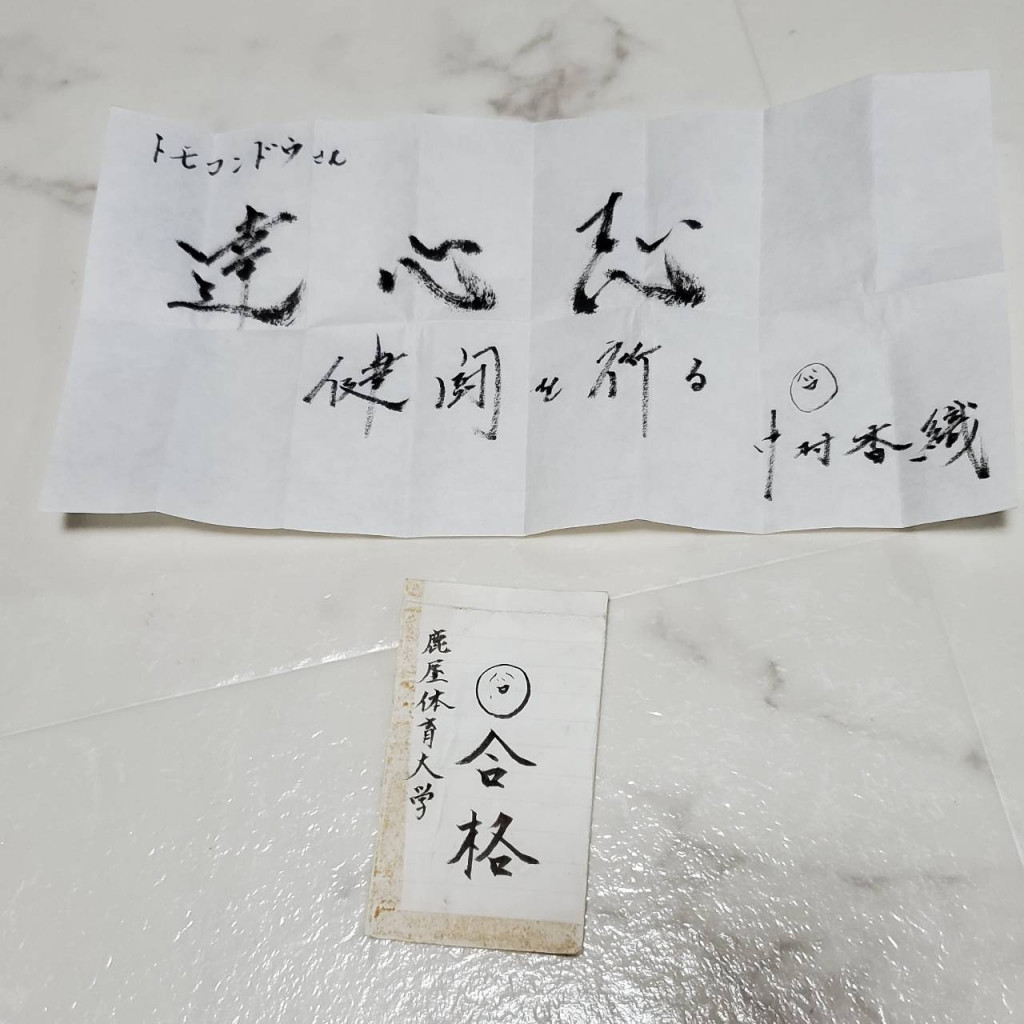 トモコンドウさん
達心
健闘を祈る
中村香織
合格
鹿屋体育大学